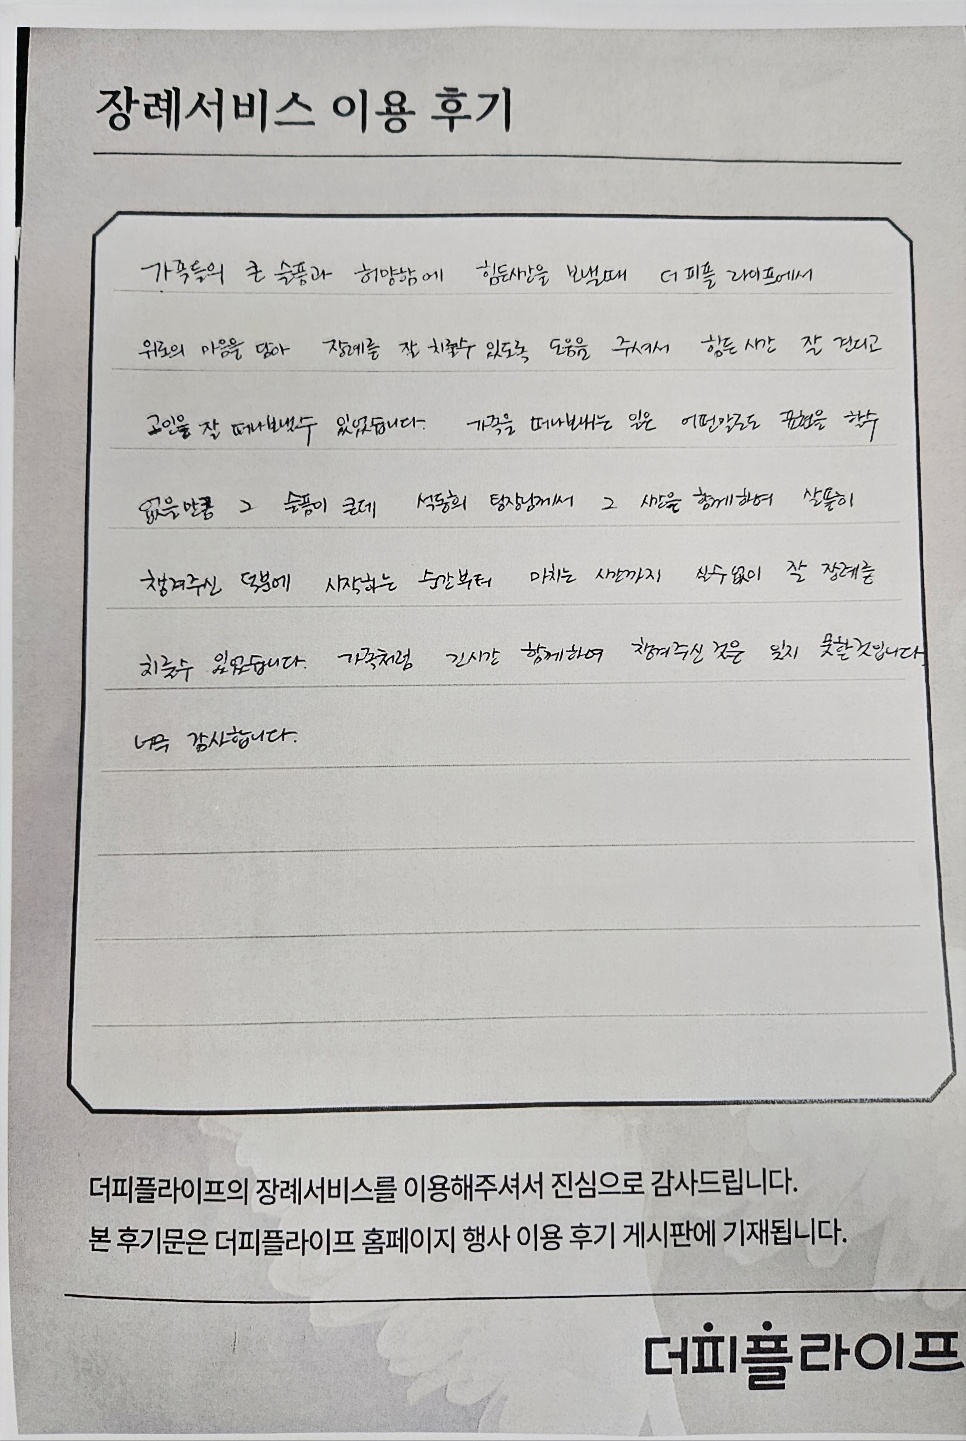 장례서비스 이용 후기
가족들의 큰 슬픔과 허망함에 힘든시간을 보낼때 더 피플 라이프에서
위로의 마음을 담아 장례를 잘 치룰수 있도록 도움을 주셔서 힘든 시간 잘 견디고
고인을 잘 떠나보낼수 있었습니다. 가족을 떠나보내는 일은 어떤말로도 표현을 할수
없을만큼 그 슬픔이 큰데 석동희 팀장님께서 그 시간을 함께하여 살뜰히
챙겨주신 덕분에 시작하는 순간부터 마치는 시간까지 실수없이 잘 장례를
치룰수 있었습니다. 가족처럼 긴시간 함께하여 챙겨주신것은 잊지 못할것입니다.
너무 감사합니다.
더피플라이프의 장례서비스를 이용해주셔서 진심으로 감사드립니다.
본 후기문은 더피플라이프 홈페이지 행사 이용 후기 게시판에 기재됩니다.
더피플라이프